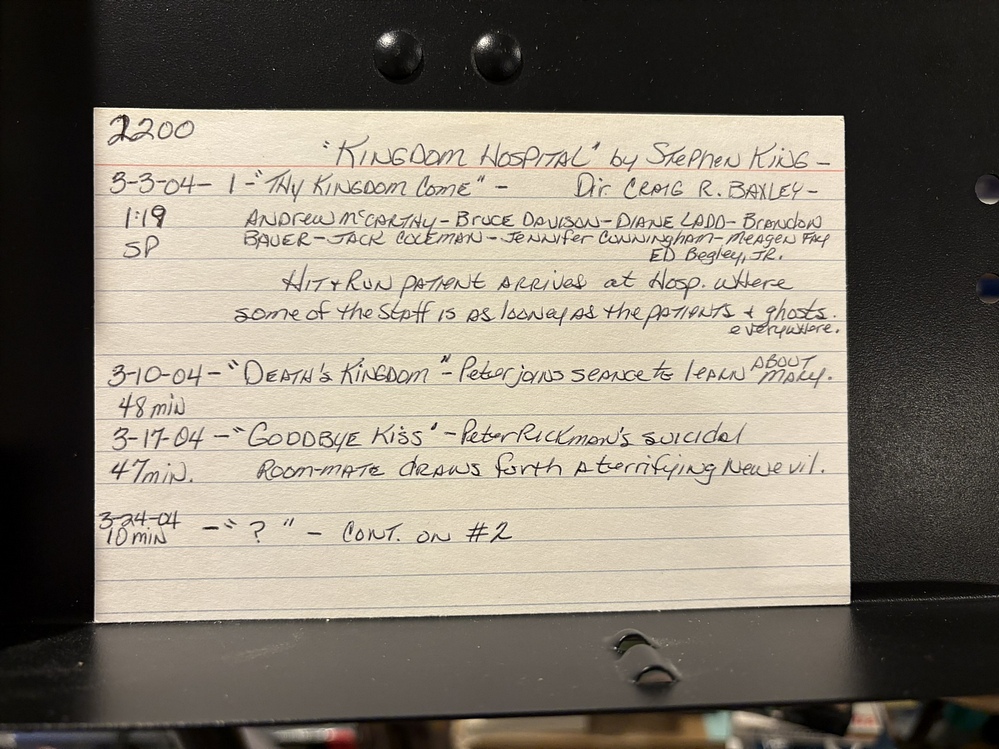 2200
"KINGDOM HOSPITAL" by STEPHEN KING -
3-3-04- 1 -"THY KINGDOM COME" - Dir. CRAIG R. BAXLEY -
1:19 ANDREW McCARTHY - BRUCE DAVISON - DIANE LADD - BRANDON
SP BAUER - JACK COLEMAN - JENNIFER CUNNINGHAM - MEAGEN FAY
ED Begley, JR.
HIT & RUN PATIENT ARRIVES at Hosp. where
some of the staff is as looney as the PATIENTS & ghosts.
everywhere.
3-10-04 - "DEATH'S KINGDOM" - Peter joins seance to learn ABOUT
MARY.
48 min
3-17-04 - "GOODBYE KISS" - PETER RICKMAN'S suicidal
47 min. ROOM-MATE draws forth A terrifying New evil.
3-24-04
10 min - " ? " - CONT. ON #2